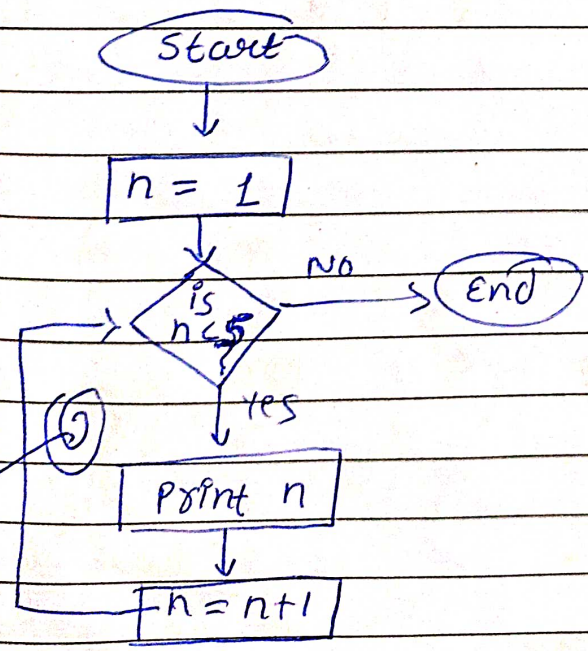 Start
n = 1
is
n<5
?
No
End
Yes
Print n
n = n+1